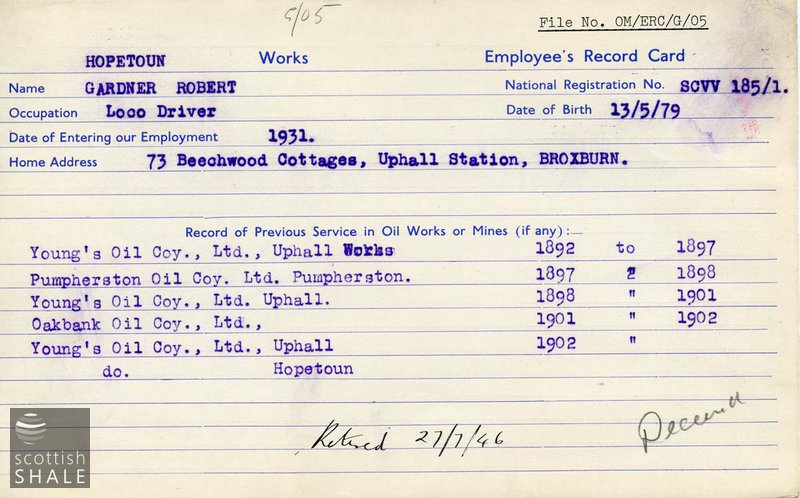 G/05
File No. OM/ERC/G/05
HOPETOUN Works Employee's Record Card
Name GARDNER ROBERT National Registration No. SCVV 185/1.
Occupation Loco Driver Date of Birth 13/5/79
Date of Entering our Employment 1931.
Home Address 73 Beechwood Cottages, Uphall Station, BROXBURN.
Record of Previous Service in Oil Works or Mines (if any):—
Young's Oil Coy., Ltd., Uphall Works 1892 to 1897
Pumpherston Oil Coy. Ltd. Pumpherston. 1897 " 1898
Young's Oil Coy., Ltd. Uphall. 1898 " 1901
Oakbank Oil Coy., Ltd., 1901 " 1902
Young's Oil Coy., Ltd., Uphall 1902 "
do. Hopetoun
Retired 27/7/46
Deceased
scottish
SHALE